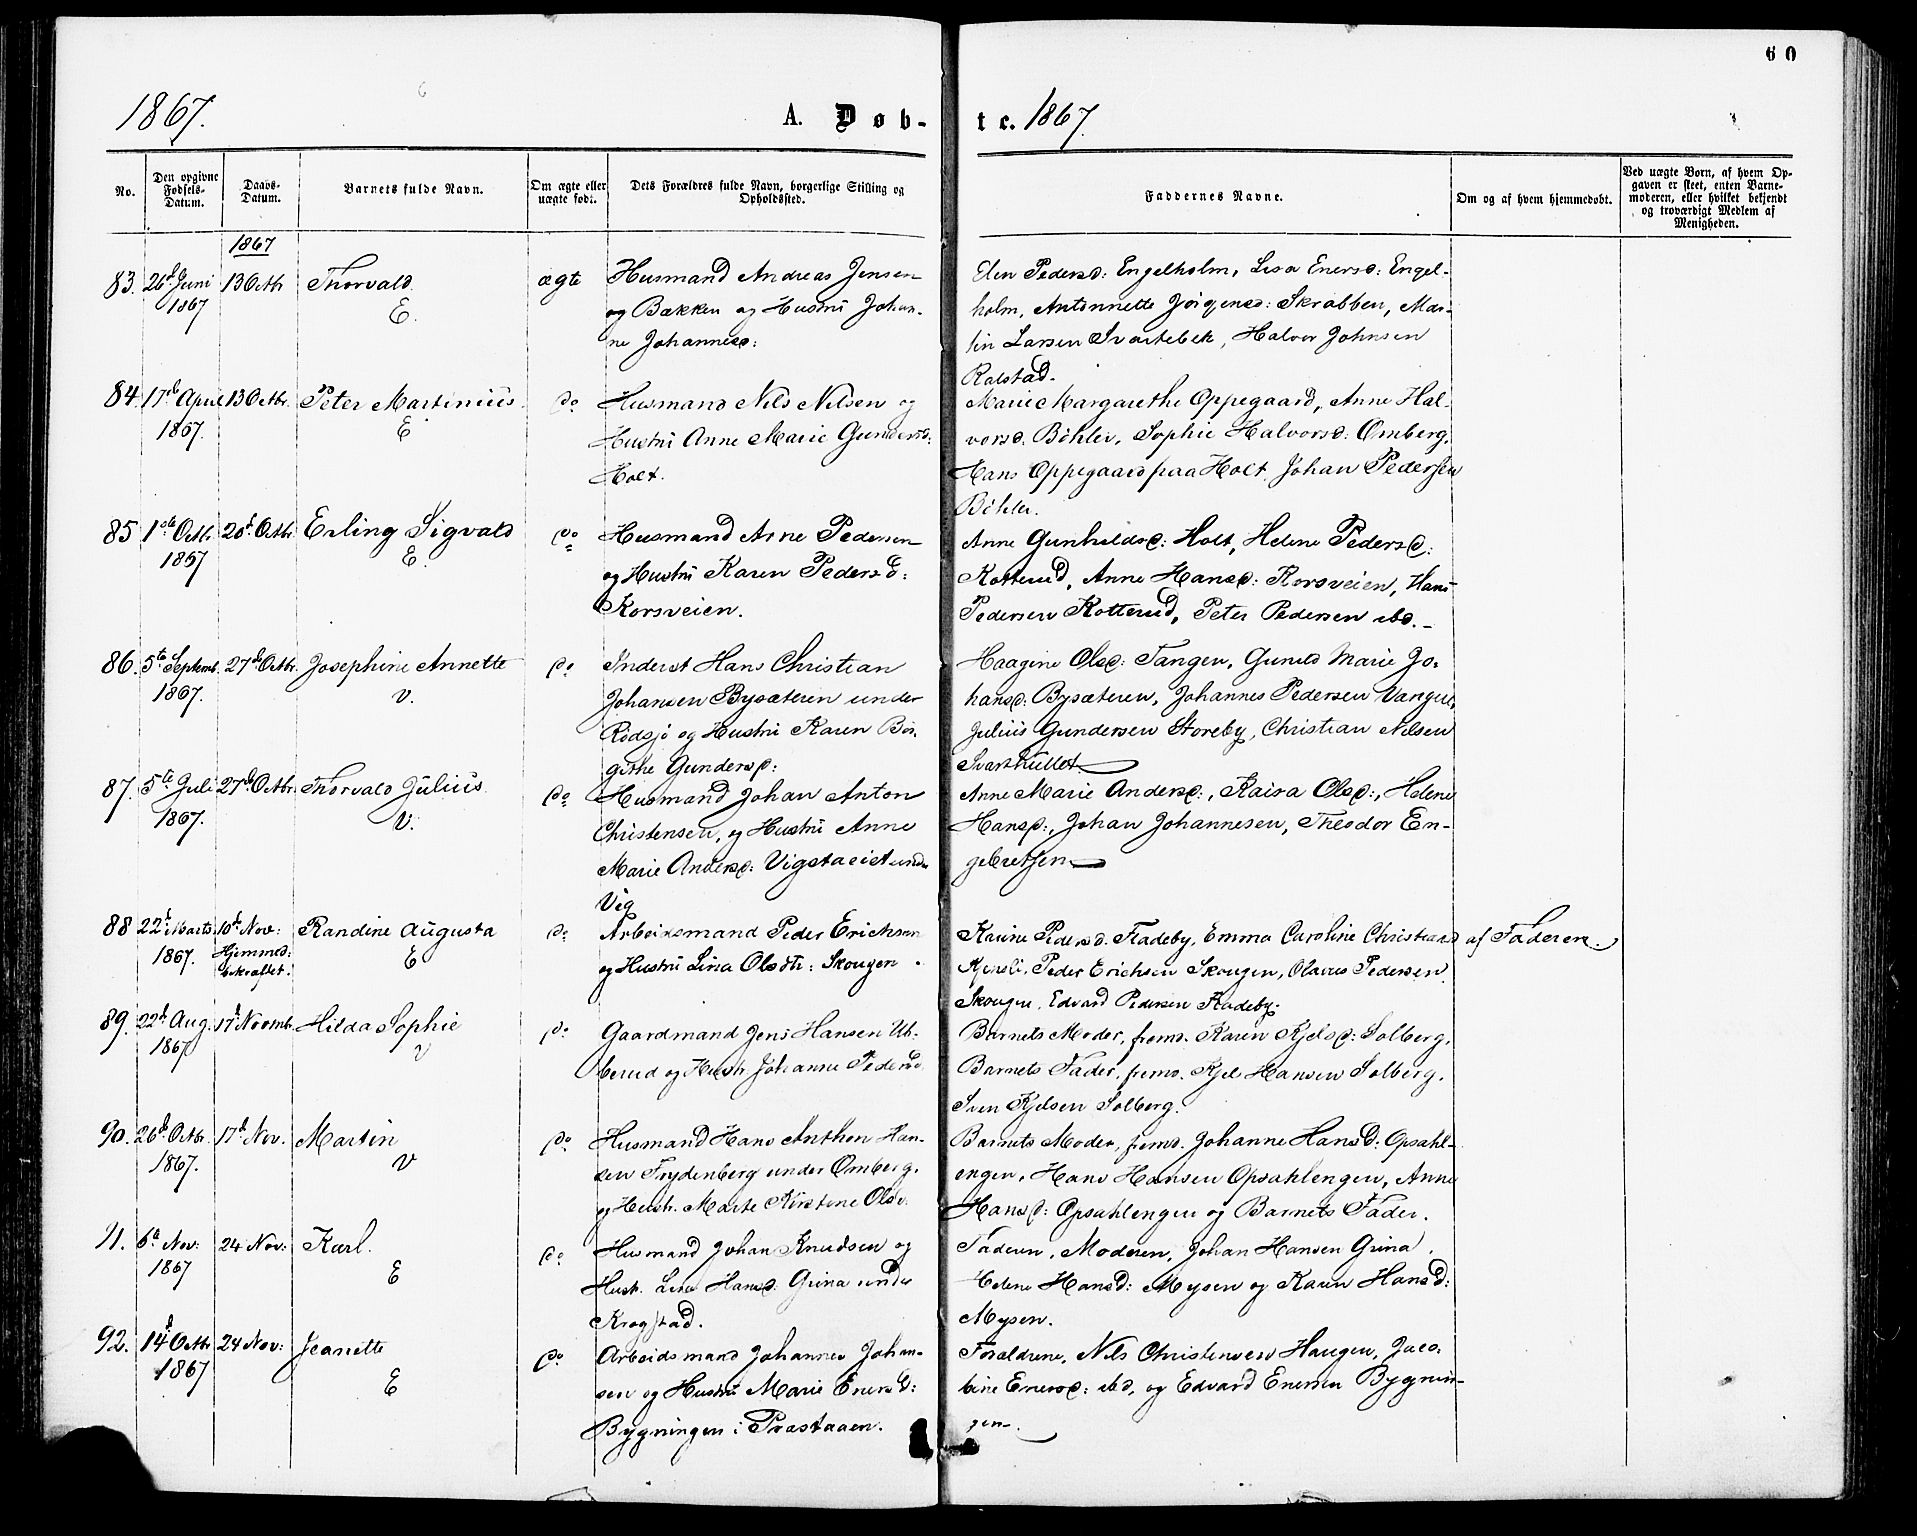 60
1867.
A. Døb-
te. 1867.
No.
Den opgivne Fødsels-Datum.
Daabs-Datum.
Barnets fulde Navn.
Om ægte eller uægte født.
Dets Forældres fulde Navn, borgerlige Stilling og Opholdssted.
Faddernes Navne.
Om og af hvem hjemmedøbt.
Ved uægte Børn, af hvem Opgaven er skeet, enten Barnemoderen, eller hvilket bekjendt og troværdigt Medlem af Menigheden.
1867
83. 26d Juni 1867 13 Octbr Thorvald. E. ægte
Husmand Andreas Jensen
og Bækken og Hustru Johan-
ne Johannesd:
Elen Pedersd: Engelholm, Lisa Enersd: Engel-
holm, Antonnette Jørgensd: Skrabben, Mar-
tin Larsen Svartebek, Halvor Johnsen
Ralstad.
84. 17d April 1867. 13 Octbr. Peter Martinius. E. do
Husmand Nils Nilsen og
Hustru Anne Marie Gundersd:
Holt.
Marie Margarethe Oppegaard, Anne Hal-
vorsd. Böhler, Sophie Halvorsd: Omberg,
Hans Oppegaard paa Holt, Johan Pedersen
Böhler.
85 1ste Octbr 1867 20d Octbr Erling Sigvald E. do
Husmand Arne Pedersen
og Hustru Karen Pedersd:
Korsveien.
Anne Gunhildsd: Holt, Helene Pedersd:
Kotterud, Anne Hansd: Korsveien, Hans
Pedersen Kotterud, Peter Pedersen ibd.
86. 5te Septemb. 1867. 27d Octbr. Josephine Annette V. do
Inderst Hans Christian
Johansen Bysæteren under
Rödsjö og Hustru Karen Bör-
githe Gundersd:
Haagine Olsd: Tangen, Gunild Marie Jo-
hansd: Bysæteren, Johannes Pedersen Vangen,
Julius Gundersen Storeby, Christian Nilsen
Svartkullet
87. 5te Juli 1867. 27d Octbr. Thorvald Julius. V. do
Husmand Johan Anton
Christensen, og Hustru Anne
Marie Andersd: Vigstaeiet under
Vig
Anne Marie Andersd:, Kaisa Olsd:, Helene
Hansd:, Johan Johannesen, Theodor En-
gebretsen
88 22d Marts 1867. 10d Nov: Hjemmed: bekræftet. Randine Augusta E do
Arbeidsmand Peder Erichsen
og Hustru Lina Olsdtr: Skougen.
Karine Pedersd. Fladeby, Emma Caroline Christiansd
Peder Erichsen Skougen, Olaves Pedersen
Skougen, Edvard Pedersen Fladeby.
af Faderen.
89. 22d Aug. 1867 17d Novmb. Hilda Sophie V do
Gaardmand Jens Hansen Ub-
berud og Hustr. Johanne Pedersd
Barnets Moder, frems. Karen Kjelsd: Solberg,
Barnets Fader, frems. Kjel Hansen Solberg,
Sven Kjelsen Solberg.
90. 26d Octbr. 1867. 17d Nov. Martin V do
Husmand Hans Anthon Han-
sen Frydenberg under Omberg,
og Hustr. Marte Kirstine Olsd.
Barnets Moder, frems. Johanne Hansd: Opsahl-
engen, Hans Hansen Opsahlengen, Anne
Hansd: Opsahlengen og Barnets Fader.
91. 6te Nov: 1867 24 Nov: Karl. E do
Husmand Johan Knudsen og
Hustr. Lisa Hansd: Grina under
Krogstad.
Faderen, Moderen, Johan Hansen Grina,
Helene Hansd: Mysen og Karen Hansd:
Mysen.
92. 14d Octbr 1867 24 Nov: Jeanette E do
Arbeidsmand Johannes Johan-
sen og Hustru Marie Enersd:
Bygningen i Præstaaen.
Forældrene, Nils Christensen Haugen, Jaco-
bine Enersd: ibd, og Edvard Enersen Bygnin-
gen.